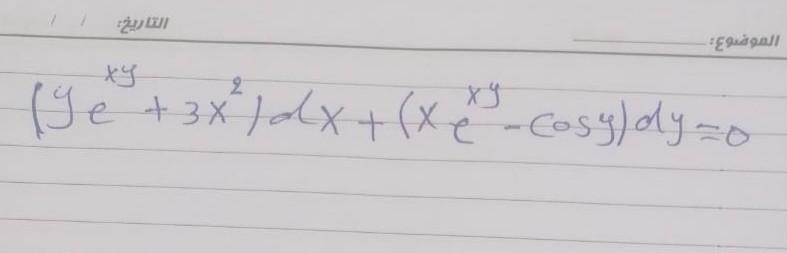 الموضوع: التاريخ: / /
(ye^{xy} + 3x^2)dx + (xe^{xy} - cosy)dy = 0